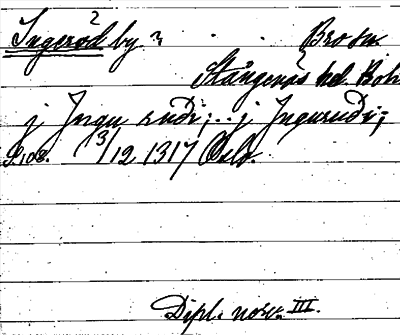 Ingeröd by ? . . Bro sn.
?
Stångenäs hd. Boh
j Ingu rudi; .. j Ingurudi;
3/12 1317 Oslo.
Dipl. norv. III.